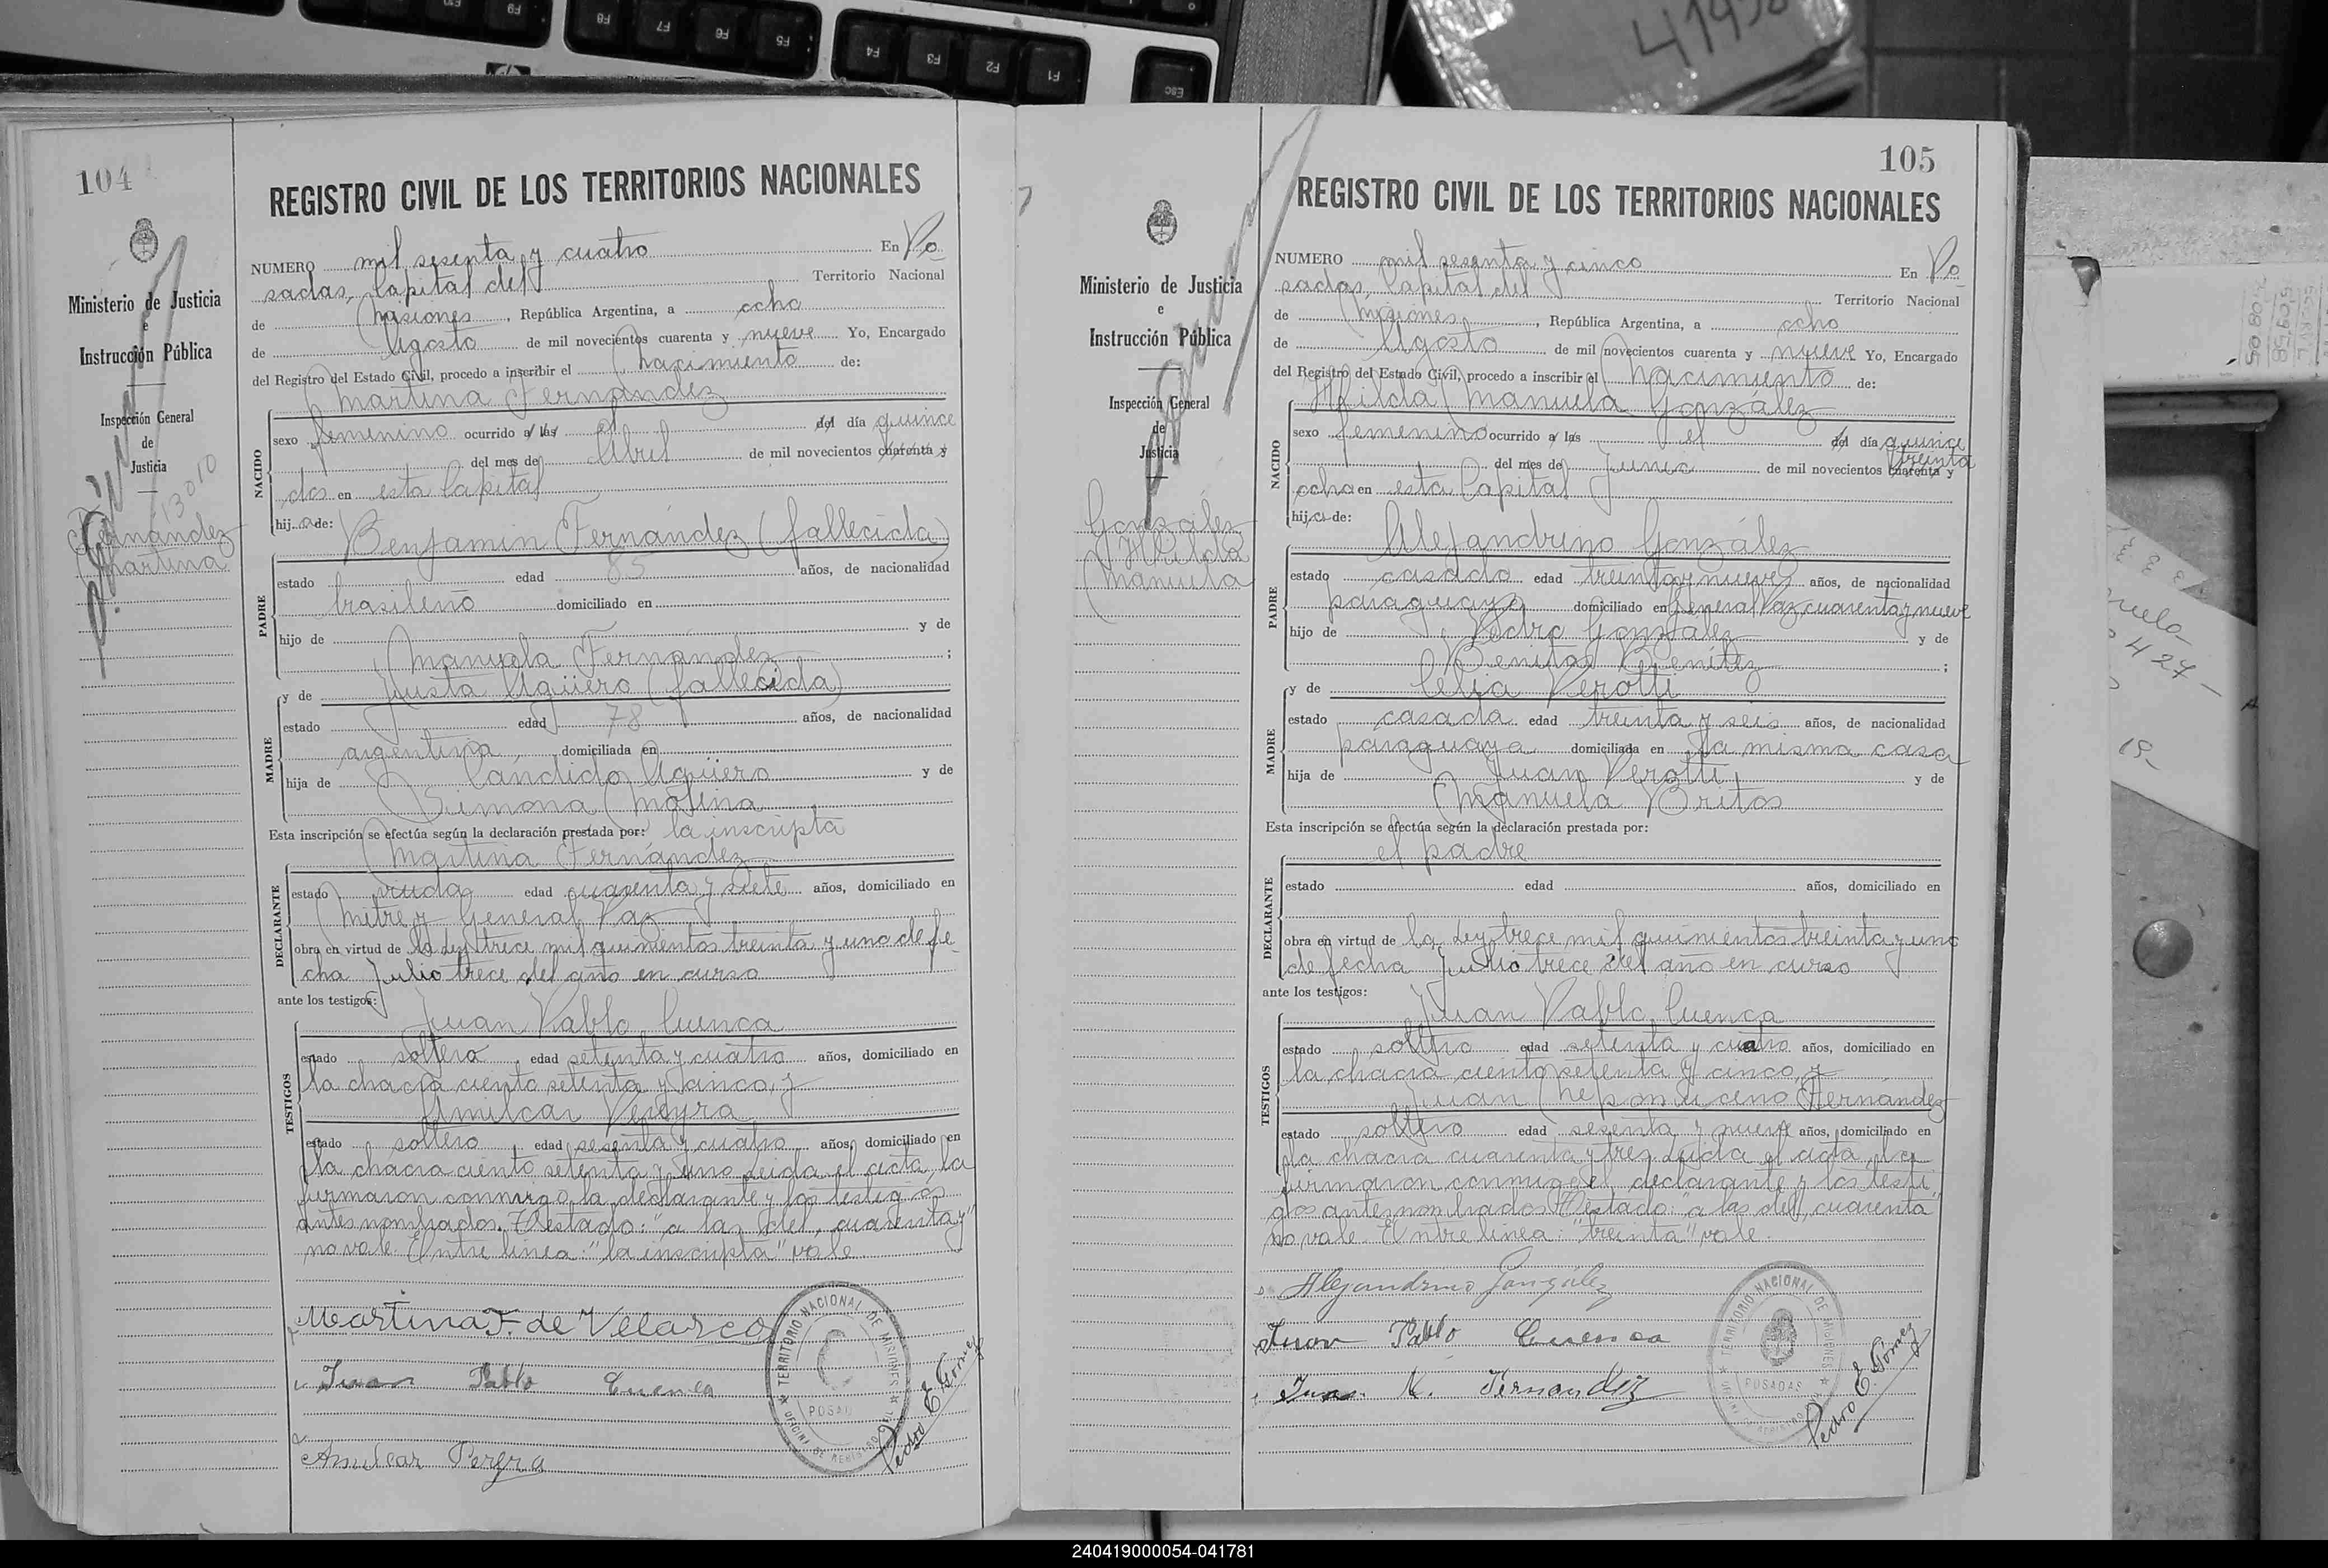 104
REGISTRO CIVIL DE LOS TERRITORIOS NACIONALES
Ministerio de Justicia
e
Instrucción Pública
Inspección General
de
Justicia
13010
Fernández
Martina
NUMERO mil sesenta y cuatro En Po
sadas, Capital del Territorio Nacional
de Misiones, República Argentina, a ocho
de Agosto de mil novecientos cuarenta y nueve Yo, Encargado
del Registro del Estado Civil, procedo a inscribir el nacimiento de:
Martina Fernández
NACIDO
sexo femenino ocurrido a las el del día quince
del mes de Abril de mil novecientos cuarenta y
dos en esta Capital
hija de:
Benjamín Fernández (fallecido)
PADRE
estado edad 85 años, de nacionalidad
brasileño domiciliado en
hijo de y de
Manuela Fernández ;
y de Justa Agüero (fallecida)
MADRE
estado edad 78 años, de nacionalidad
argentina, domiciliada en
hija de Cándido Agüero y de
Simona Molina
Esta inscripción se efectúa según la declaración prestada por: la inscripta
Martina Fernández
DECLARANTE
estado viuda edad cuarenta y siete años, domiciliado en
Mitre y General Paz
obra en virtud de la ley trece mil quinientos treinta y uno de fe
cha Julio trece del año en curso
ante los testigos:
Juan Pablo Cuenca
TESTIGOS
estado soltero, edad setenta y cuatro años, domiciliado en
la chacra ciento setenta y cinco, y
Amilcar Pereyra
estado soltero edad sesenta y cuatro años, domiciliado en
la chacra ciento setenta y uno Leida el acta, la
firmaron conmigo la declarante y los testigos
antes nombrados. Testado: "a las del, cuarenta y"
no vale. Entre línea: "la inscripta" vale.
Martina F. de Velasco
Juan Pablo Cuenca
Amilcar Pereyra
TERRITORIO NACIONAL DE MISIONES
POSADAS
Pedro E. Gómez
105
REGISTRO CIVIL DE LOS TERRITORIOS NACIONALES
Ministerio de Justicia
e
Instrucción Pública
Inspección General
de
Justicia
González
Hilda
Manuela
NUMERO mil sesenta y cinco En Po
sadas, Capital del Territorio Nacional
de Misiones, República Argentina, a ocho
de Agosto de mil novecientos cuarenta y nueve Yo, Encargado
del Registro del Estado Civil, procedo a inscribir el nacimiento de:
Hilda Manuela González
NACIDO
sexo femenino ocurrido a las el del día quince
treinta
del mes de Junio de mil novecientos cuarenta y
ocho en esta Capital
hija de:
Alejandrino González
PADRE
estado casado edad treinta y nueve años, de nacionalidad
paraguayo domiciliado en General Paz cuarenta y nueve
hijo de Pedro González y de
Benita Benítez ;
y de Celia Perotti
MADRE
estado casada edad treinta y seis años, de nacionalidad
paraguaya domiciliada en la misma casa
hija de Juan Perotti y de
Manuela Britos
Esta inscripción se efectúa según la declaración prestada por:
el padre
DECLARANTE
estado edad años, domiciliado en
obra en virtud de la Ley trece mil quinientos treinta y uno
de fecha Julio trece del año en curso
ante los testigos:
Juan Pablo Cuenca
TESTIGOS
estado soltero edad setenta y cuatro años, domiciliado en
la chacra ciento setenta y cinco, y
Juan Nepomuceno Fernández
estado soltero edad sesenta y nueve años, domiciliado en
la chacra cuarenta y tres Leida el acta, la
firmaron conmigo el declarante y los testi
gos antes nombrados Testado: "a las del, cuarenta"
no vale. Entre línea: "treinta" vale.
Alejandrino González
Juan Pablo Cuenca
Juan N. Fernandez
TERRITORIO NACIONAL DE MISIONES
POSADAS
Pedro E. Gómez
240419000054-041781